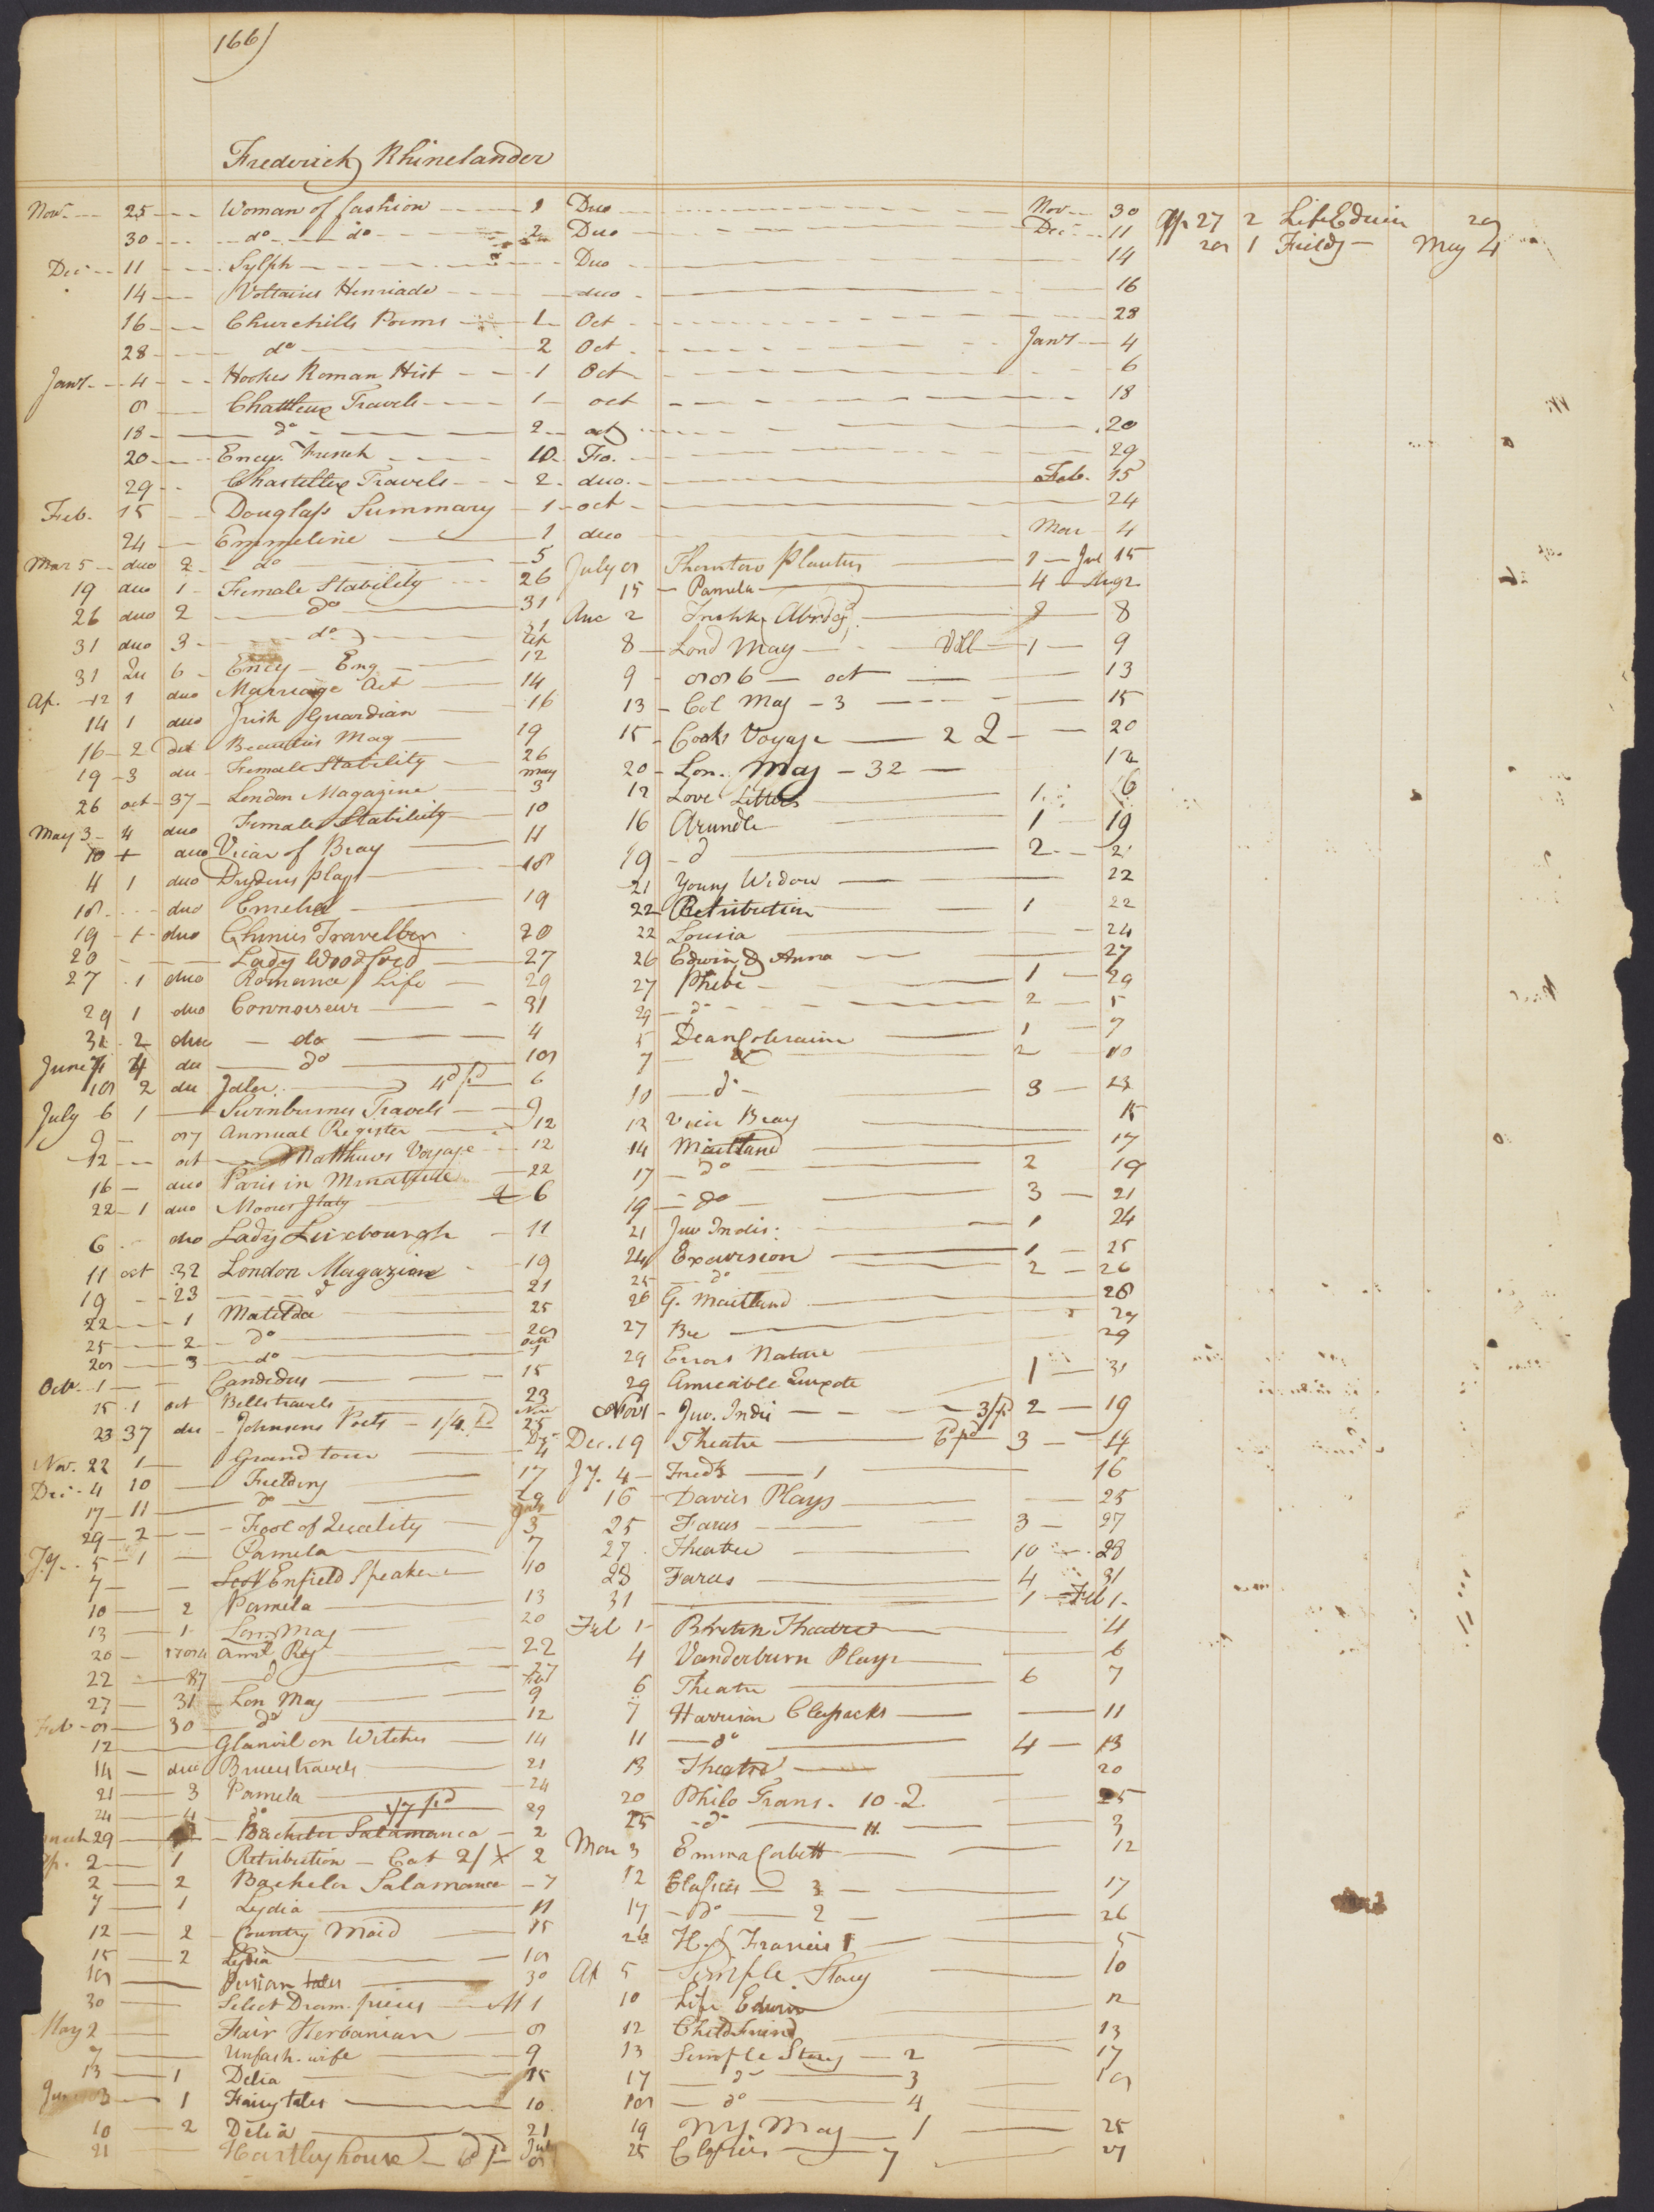 166)
Frederick Rhinelander
Nov. 25 Woman of fashion 1 Duo Nov 30
30 do do 2 Duo Dec 11
Dec 11 Sylph Duo 14
14 Voltaires Henriade duo 16
16 Churchills Poems 1 Oct 28
28 do 2 Oct Jany 4
Jany 4 Hookes Roman Hist 1 Oct 6
8 Chattleux Travels 1 oct 18
18 do 2 oct 20
20 Ency. French 10 Fo. 29
29 Chastellux Travels 2 duo. Feb. 15
Feb. 15 Douglass Summary 1 oct 24
24 Emmeline 1 duo Mar 4
Mar 5 duo 2 do 5
19 duo 1 Female Stability 26
26 duo 2 do 31
31 duo 3 do
31 6 Ency Eng 12
Ap. 12 1 duo Marriage Act 14
14 1 duo Irish Guardian 16
16 2 Beauties Mag 19
19 3 du Female Stability 26
26 oct 37 London Magazine may 3
May 3 4 duo Female Stability 10
10 duo Vicar of Bray 11
4 1 duo Drydens plays 18
18 duo Emelia 19
19 duo Chinies Traveller 20
20 Lady Woodford 27
27 1 duo Romance Life 29
29 1 duo Connoiseur 31
31 2 duo do 4
June 4 4 du do 18
18 2 du Idler 4d pd 6
July 6 1 Swinburnes Travels 9
9 87 Annual Register 12
12 oct Matthews Voyage 12
16 duo Paris in Minature 22
22 1 duo Moores Italy 6
6 duo Lady Luxbourgh 11
11 oct 32 London Magazine 19
19 23 d 21
22 1 Matilda 25
25 2 do 28
28 3 do Octr 1
Octr. 1 Candidus 15
15 1 oct Bells travels 23
23 37 du Johnsons Poets 1/4 pd Nov 25
Nov. 22 1 Grand tour 4
Dec. 4 10 Fielding 17
17 11 do 29
29 2 Fool of Quality 5
Jy. 5 1 Pamela 7
7 Enfield Speaker 10
10 2 Pamela 13
13 1 Lon. Mag 20
20 Annl Reg 22
22 87 d 27
27 31 Lon Mag 9
Feb 8 30 do 12
12 Glanvil on Witches 14
14 duo Bruces travels 21
21 3 Pamela 24
24 4 do 1/7 pd 29
29 Bachelor Salamanca 2
Ap. 2 1 Retribution 2
2 2 Bachelor Salamanca 7
7 1 Lydia 11
12 2 Country Maid 15
15 2 Lydia 18
18 Persian tales 30
30 Select Dram. pieces M 1
May 2 Fair Hibernian 8
7 Unfash. wife 9
13 1 Delia 15
3 1 Fairy tales 10
10 2 Delia 21
21 Hartley house 6d pd 8
July 8 Thornton Planters 1 Jul 15
15 Pamela 4 Aug 2
Aug 2 8
8 Lond Mag Vill 1 9
9 88 6 oct 13
13 Col Mag 3 15
15 Cooks Voyage 2 2 20
20 Lon. Mag 32 12
12 Love Letters 1 16
16 Arundle 1 19
19 d 2 21
21 Young Widow 22
22 Retribution 1 22
22 Louisa 24
26 Edwin & Anna 27
27 Phebe 1 29
29 do 2 5
5 Dean Coleraine 1 7
7 do 2 10
10 do 3 23
12 Vicar Bray 15
14 Maitland 17
17 do 2 19
19 do 3 21
21 Juv Indis: 1 24
24 Excursion 1 25
25 do 2 26
26 G. Maitland 28
27 Bee 29
29 Errors Nature 29
29 Amicable Quixote 1 31
Nov 1 Juv. Indis 3/pd 2 19
Dec. 19 Theatre 6d pd 3 14
Jy. 4 Fredk 1 16
16 Davies Plays 25
25 Farces 3 27
27 Theatre 10 28
28 Farces 4 31
31 1 Feb 1
Feb 1 British Theatre 4
4 Vanderburn Plays 6
6 Theatre 6 7
7 Harrison 11
11 do 4 13
13 Theatre 20
20 Philo Trans. 10 2 25
25 do 11 3
Mar 3 Emma Corbett 12
12 Classics 3 17
17 do 2 26
26 H. of Francis 1 5
Ap 5 Simple Story 10
10 Life Edwin 12
12 Childs Friend 13
13 Simple Story 2 17
17 do 3 18
18 do 4
19 NY Mag 1 25
25 Classics 7 27
Ap 27 2 Life Edwin 28
28 1 Fieldg May 4